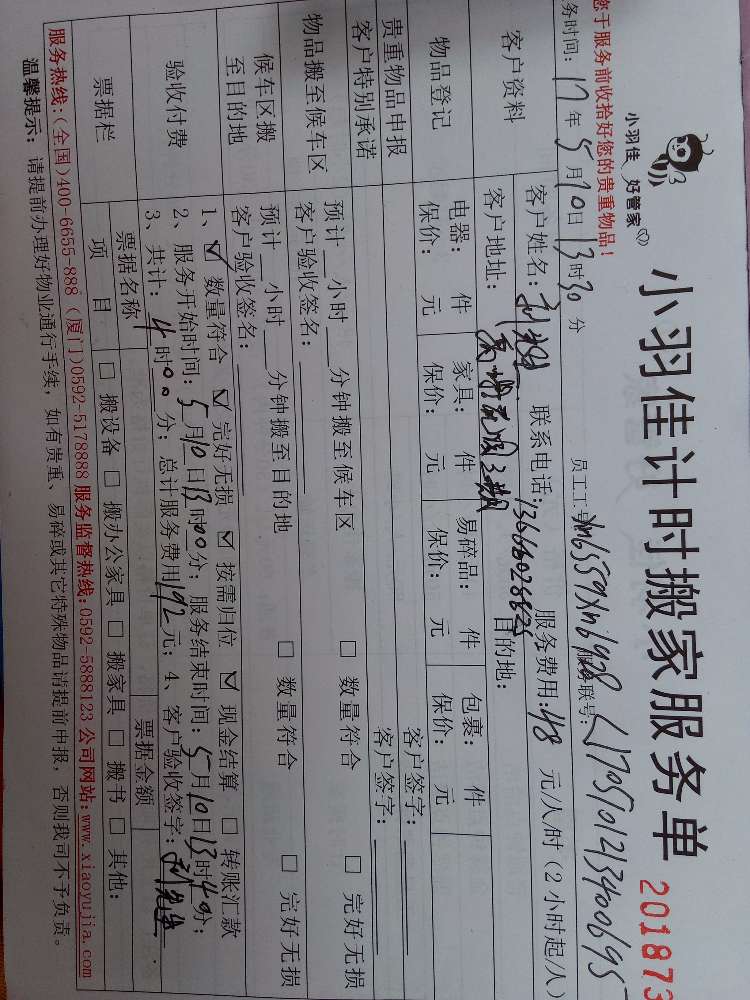 小羽佳 好管家
小羽佳计时搬家服务单 201873
您于服务前收拾好您的贵重物品！
务时间：17年5月10日13时30分 员工工号 xm6559 xm6928 联号：
客户资料
客户姓名： 联系电话：13666028825 服务费用：48元/人/时（2小时起/人）
客户地址： 目的地：
物品登记
电器： 件 家具： 件 易碎品： 件 包裹： 件
保价： 元 保价： 元 保价： 元 保价： 元
贵重物品申报 客户签字：
客户特别承诺 客户签字：
物品搬至候车区
预计 小时 分钟搬至候车区 □ 数量符合 □ 完好无损
客户验收签名：
候车区搬至目的地
预计 小时 分钟搬至目的地 □ 数量符合 □ 完好无损
客户验收签名：
验收付费
1、☑ 数量符合 ☑ 完好无损 ☑ 按需归位 ☑ 现金结算 □ 转账汇款
2、服务开始时间：5月10日13时00分；服务结束时间：5月10日13时40分；
3、共计：4时00分；总计服务费用192元；4、客户验收签字：
票据栏
票据名称 票据金额
项 目 □ 搬设备 □ 搬办公家具 □ 搬家具 □ 搬书 □ 其他：
服务热线：（全国）400-6655-888（厦门）0592-5178888 服务监督热线：0592-5888123 公司网站：www.xiaoyujia.com
温馨提示：请提前办理好物业通行手续，如有贵重、易碎或其它特殊物品请提前申报，否则我司不予负责。